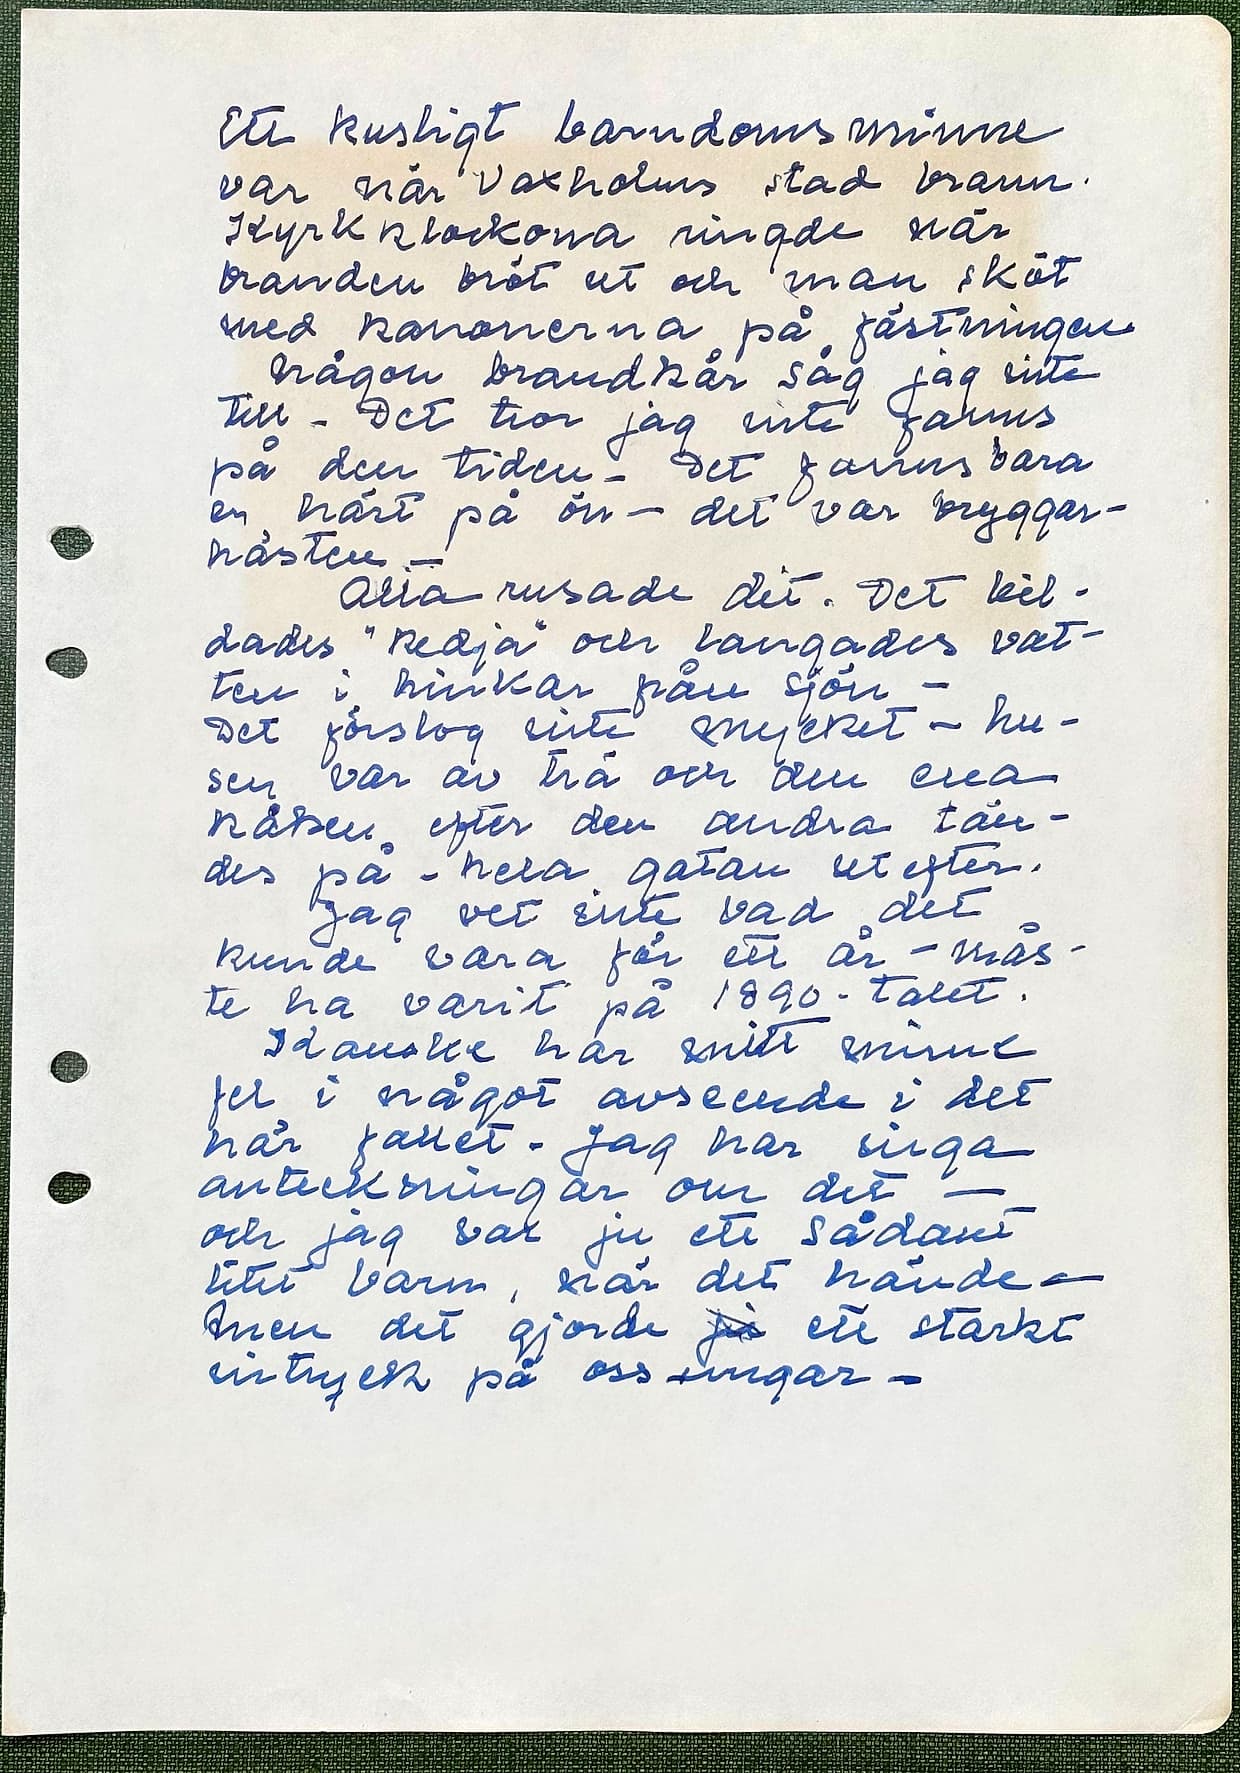 Ett kusligt barndomsminne
var när Vaxholms stad brann.
Kyrkklockorna ringde när
branden bröt ut och man sköt
med kanonerna på fästningen
någon brandkår såg jag inte
till - Det tror jag inte fanns
på den tiden - Det fanns bara
en häst på ön - det var bryggar-
hästen -
Alla rusade dit. Det bil-
dades "kedja" och langades vat-
ten i hinkar från sjön -
Det förslog inte mycket - hu-
sen var av trä och den ena
kåken efter den andra tän-
des på - hela gatan utefter.
Jag vet inte vad det
kunde vara för ett år - mås-
te ha varit på 1890-talet.
Kanske har mitt minne
fel i något avseende i det
här fallet - Jag har inga
anteckningar om det -
och jag var ju ett sådant
litet barn, när det hände -
Men det gjorde ett starkt
intryck på oss ungar -